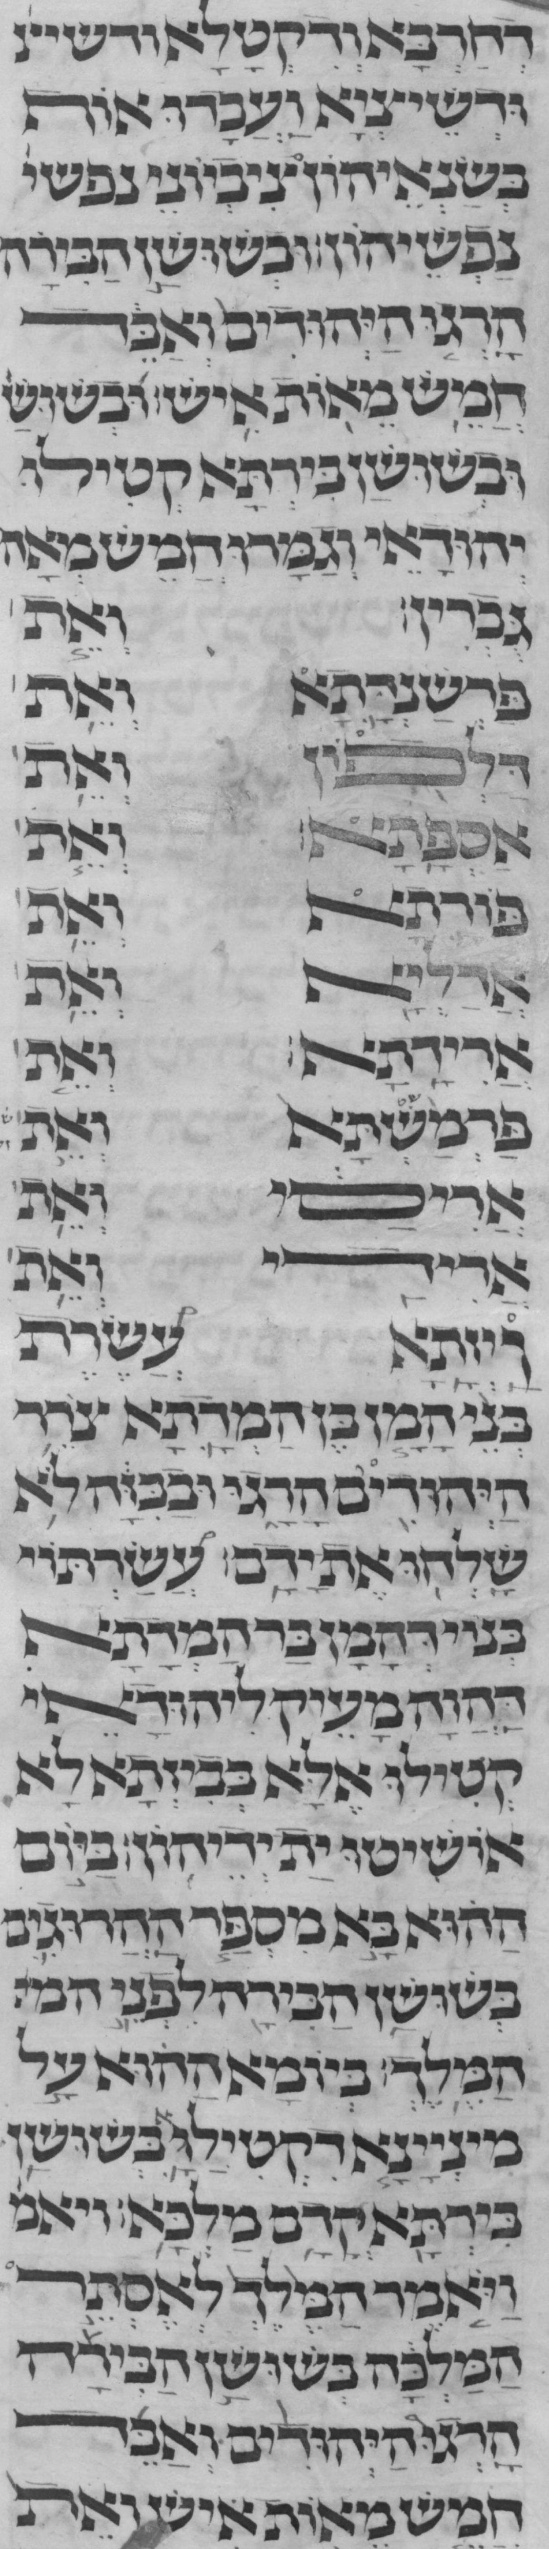 דְחַרְבָּא וְדִקְטָלָא ודשיינ
וּדְשֵׁיצְיָא וַעֲבָדוּ אוֹת
בְּשַׂנְאֵיהוֹן צִיבְיוֹנֵי נפשי
נַפְשֵׁיהוֹן׃ וּבְשׁוּשַׁן הַבִּירָה
הָרְגוּ הַיְּהוּדִים וְאַבֵּד
חֲמֵשׁ מֵאוֹת אִישׁ׃ וּבְשׁוּשַׁ
וּבְשׁוּשַׁן בִּירְתָּא קְטִילוּ
יְהוּדָאֵי וְגַמָּרוּ חֲמֵשׁ מְאָה
גֻּבְרִין׃ וְאֵת
פַּרְשַׁנְדָּתָא וְאֵת
דַּלְפוֹן וְאֵת
אַסְפָּתָא׃ וְאֵת
פּוֹרָתָא וְאֵת
אֲדַלְיָא וְאֵת
אֲרִידָתָא׃ וְאֵת
פַּרְמַשְׁתָּא וְאֵת
אֲרִיסַי וְאֵת
אֲרִידַי וְאֵת
וַיְזָתָא עֲשֶׂרֶת
בְּנֵי הָמָן בֶּן הַמְּדָתָא צֹרֵר
הַיְּהוּדִים הָרָגוּ וּבַבִּזָּה לֹא
שָׁלְחוּ אֶת יָדָם׃ עֲשַׂרְתּוֹי
בְּנוֹי דְּהָמָן בַּר הַמְּדָתָא
דַּהֲוָה מָעֵיק לִיהוּדָאֵי
קְטִילוּ אֶלָּא בְּבִיזְתָא לָא
אוֹשִׁיטוּ יַת יְדֵיהוֹן׃ בַּיּוֹם
הַהוּא בָּא מִסְפַּר הַהֲרוּגִים
בְּשׁוּשַׁן הַבִּירָה לִפְנֵי המ
הַמֶּלֶךְ׃ בְּיוֹמָא הַהוּא עָל
מִינְיָינָא דִקְטִילוּ בְּשׁוּשַׁן
בִּירְתָּא קֳדָם מַלְכָּא׃ ויאמ
וַיֹּאמֶר הַמֶּלֶךְ לְאֶסְתֵּר
הַמַּלְכָּה בְּשׁוּשַׁן הַבִּירָה
הָרְגוּ הַיְּהוּדִים וְאַבֵּד
חֲמֵשׁ מֵאוֹת אִישׁ וְאֵת